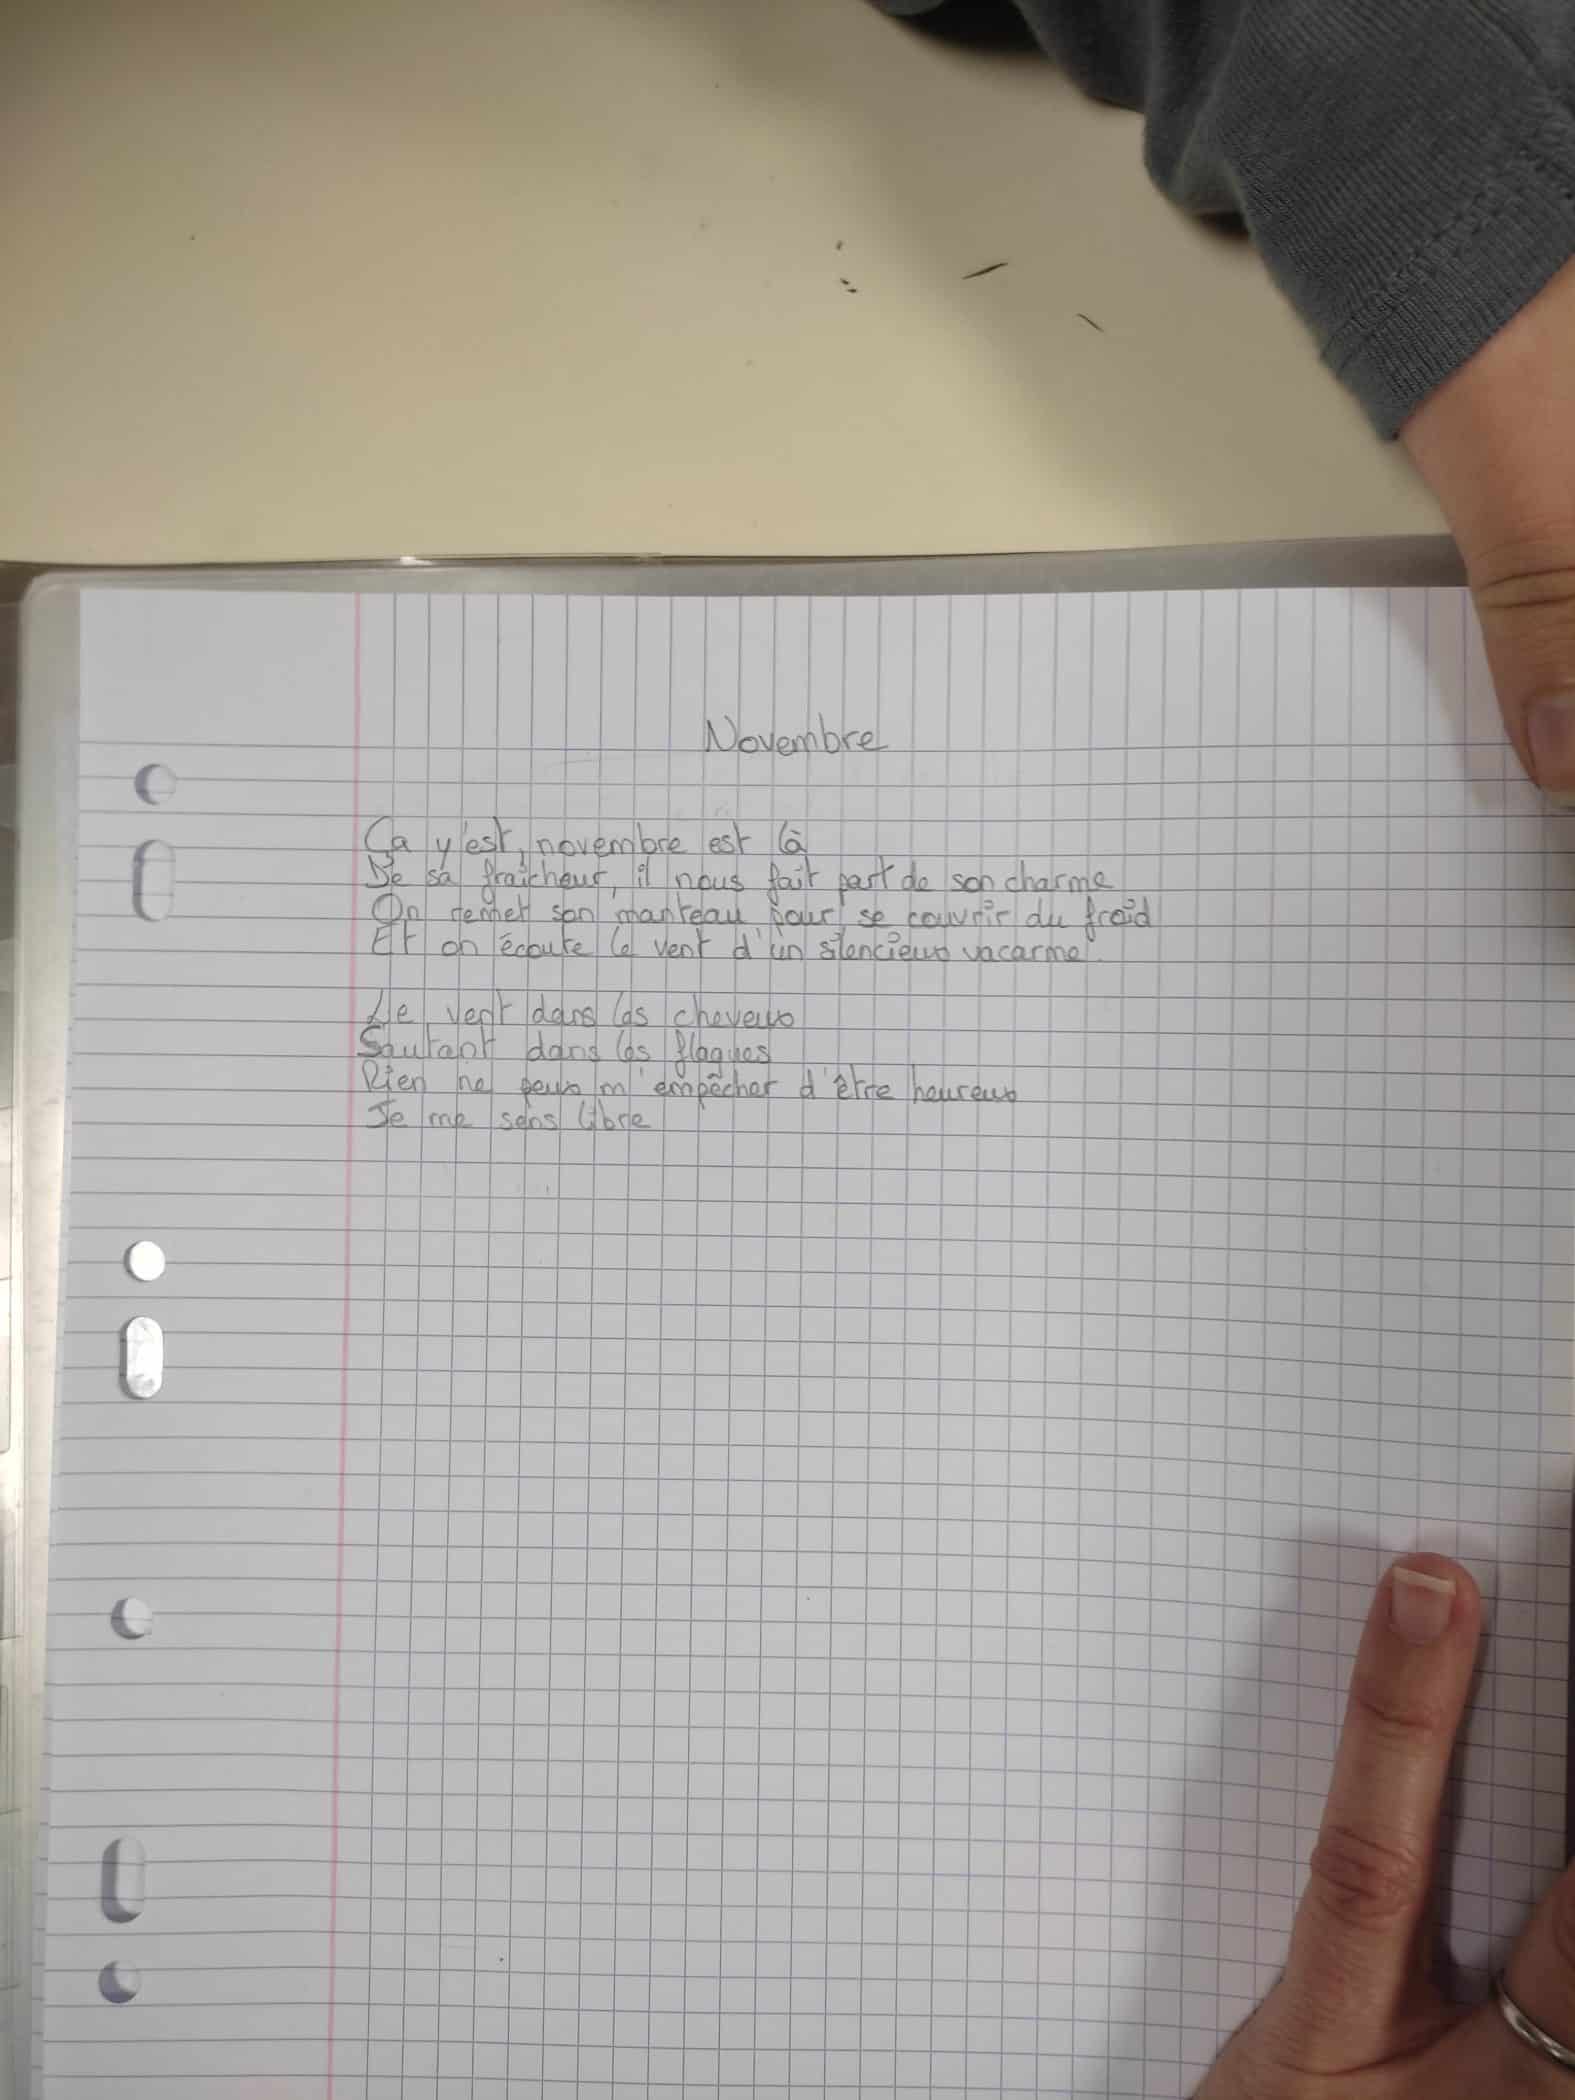 Novembre
Ça y'est, novembre est là
De sa fraîcheur, il nous fait part de son charme
On remet son manteau pour se couvrir du froid
Et on écoute le vent d'un silencieux vacarme.
Le vent dans les cheveux
Sautant dans les flaques
Rien ne peux m'empêcher d'être heureux
Je me sens libre